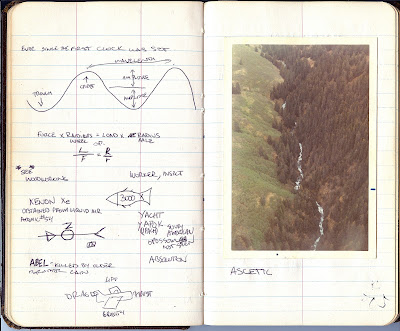 EVER SINCE THE FIRST CLOCK WAS SET
WAVELENGTH
CREST
AMPLITUDE
AMPLITUDE
TROUGH
FORCE X RADIUS = LOAD X RADIUS
WHEEL OF AXLE
L/F = R/r
SEE
WOODWORKING
WORKER, INSECT
3000
XENON Xe
OBTAINED FROM LIQUID AIR
ATOMIC #54
Z
YACHT
ABEL - KILLED BY OLDER
BROTHER CAIN
ABSOLUTION
LIFT
DRAG
THRUST
GRAVITY
ASCETIC